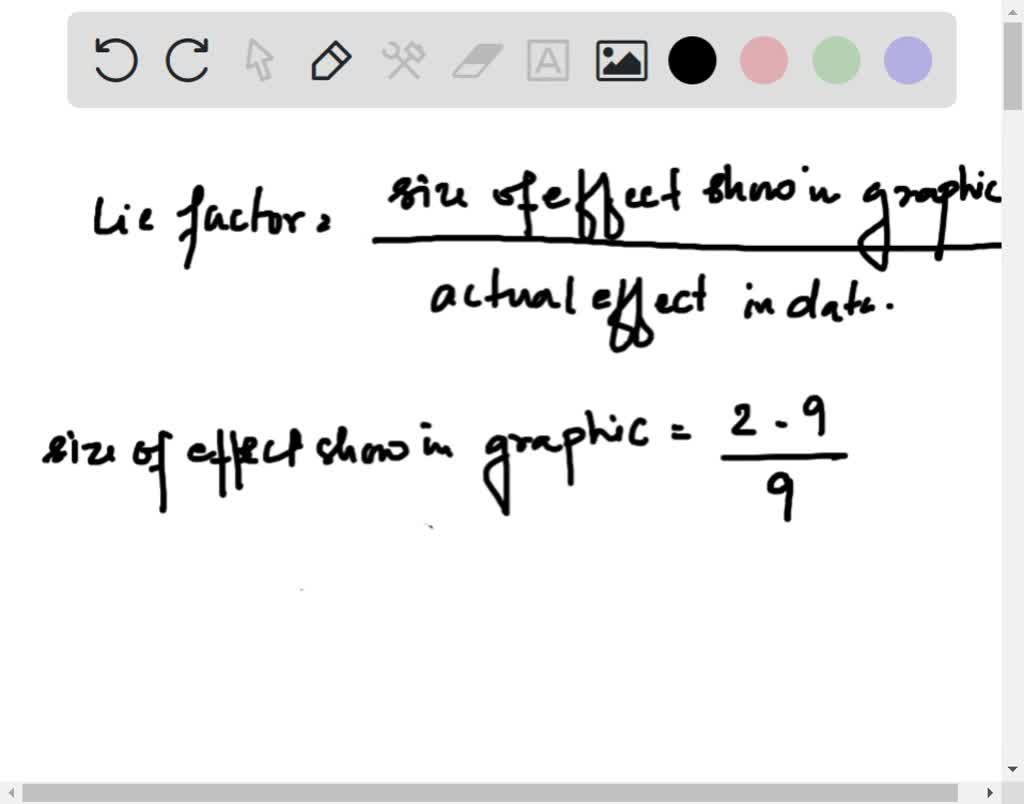 A
Lie factor = size of effect show in graphic
actual effect in data.
size of effect show in graphic = 2 - 9
9